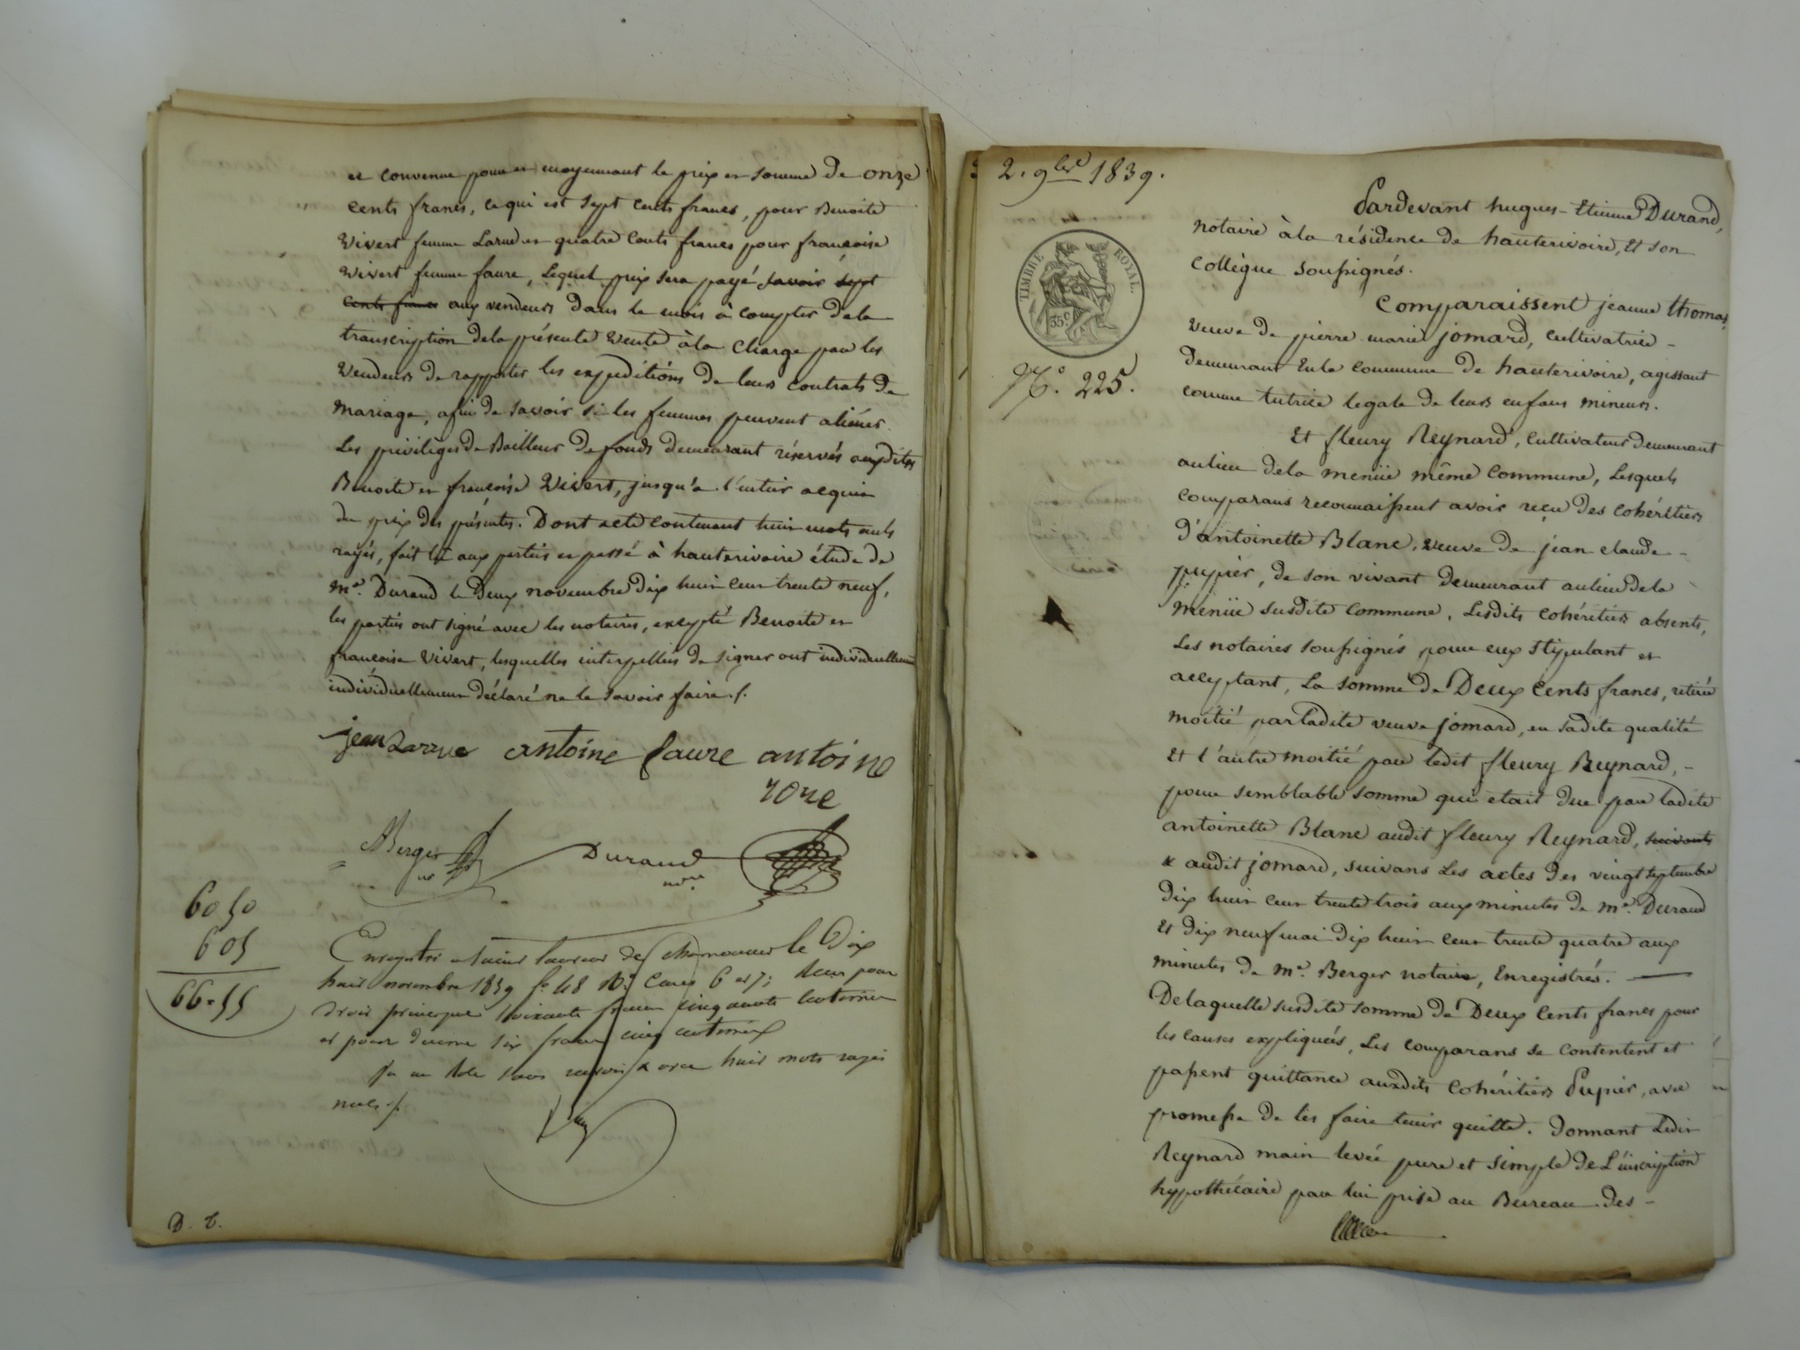 et convenue pour et moyennant le prix et somme de onze
cents francs, ce qui est sept cents francs, pour Benoite
Vivert femme Larue et quatre cents francs pour francoise
Vivert femme faure, Lequel prix sera payé savoir sept
cents francs aux vendeurs dans le mois à compter dela
transcription dela présente vente àla charge par les
vendeurs de rapporter les expéditions de leurs contrats de
mariage, afin de savoir si les femmes peuvent aliéner.
Les privilèges de Bailleur de fonds demeurant réservés auxdites
Benoite et francoise Vivert, jusqu'a l'entier acquit
du prix des présentes. Dont acte contenant huit mots nuls
rayés, fait lû aux parties et passé à hauterivoire étude de
me. Durand le Deux novembre Dix huit cent trente neuf,
les parties ont signé avec les notaires, excepté Benoite et
francoise Vivert, lesquelles interpellées de signer ont individuellement
individuellement déclaré ne le savoir faire /.
jean Larue antoine faure antoine
rone
Berger Durand
nre nore
60 50
6 05
66 = 55
Enregistré à Saint Laurent de Chamousset le Dix
huit novembre 1839 fo 48 Ro Cases 6 et 7; Reçu pour
droit principal soixante francs cinquante centimes
et pour decime six francs cinq centimes
huit mots rayés
nuls /.
D. D.
2. 9bre 1839.
Pardevant hugues-Etienne Durand,
notaire àla résidence de hauterivoire, Et son
collègue soussignés.
TIMBRE ROYAL.
35c
Comparaissent jeanne thomas,
veuve de pierre marie jomard, cultivatrice -
demeurant Enla commune de hauterivoire, agissant
No. 225.
comme tutrice legale de leurs enfans mineurs.
Et fleury Reynard, cultivateur demeurant
aulieu dela menüe même commune, Lesquels
comparans reconnaissent avoir reçu des cohéritiers
d'antoinette Blanc, veuve de jean claude -
pupier, de son vivant demeurant aulieu dela
menüe susdite commune, Lesdits cohéritiers absents,
Les notaires soussignés pour eux stipulant et
acceptant, La somme de Deux cents francs, retirée
moitié par Ladite veuve jomard, en sadite qualité
Et l'autre moitié par ledit fleury Reynard, -
pour semblable somme qui était due par Ladite
antoinette Blanc audit fleury Reynard, suivants
& audit jomard, suivans Les actes des vingt septembre
dix huit cent trente trois aux minutes de me. Durand
Et dix neuf mai dix huit cent trente quatre aux
minutes de me. Berger notaire, Enregistrés. -
De laquelle susdite somme de Deux cents francs pour
les causes expliquées, Les comparans se contentent et
passent quittance auxdits cohéritiers Pupier, avec
promesse de les faire tenir quitte. Donnant Ledit
Reynard main levée pure et simple de L'inscription
hypothécaire par lui prise au Bureau des -